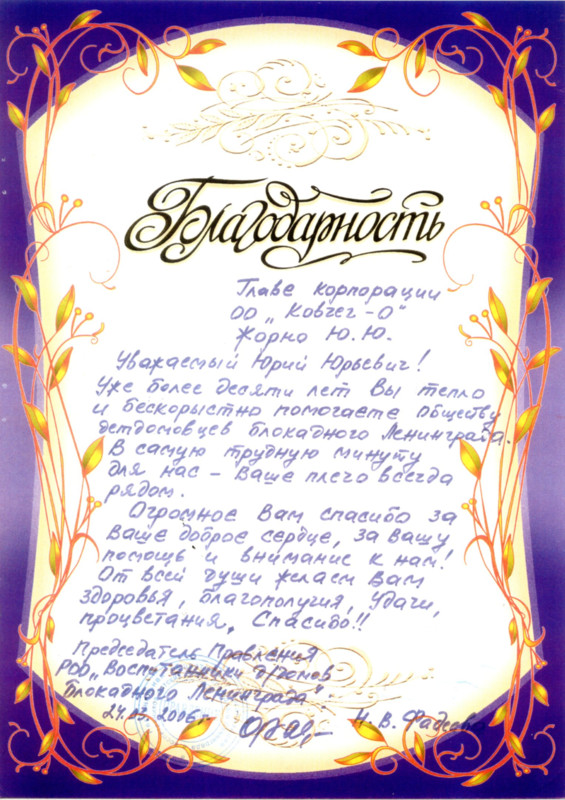 Благодарность
Главе корпорации
ОО „Ковчег-О"
Жорно Ю.Ю.
Уважаемый Юрий Юрьевич!
Уже более десяти лет Вы тепло
и бескорыстно помогаете обществу
детдомовцев блокадного Ленинграда.
В самую трудную минуту
для нас – Ваше плечо всегда
рядом.
Огромное Вам спасибо за
Ваше доброе сердце, за Вашу
помощь и внимание к нам!
От всей души желаем Вам
здоровья, благополучия, удачи,
процветания, Спасибо!!
Председатель Правления
РОО „Воспитанники д/домов
блокадного Ленинграда".
2006г. Н.В. Фадеева